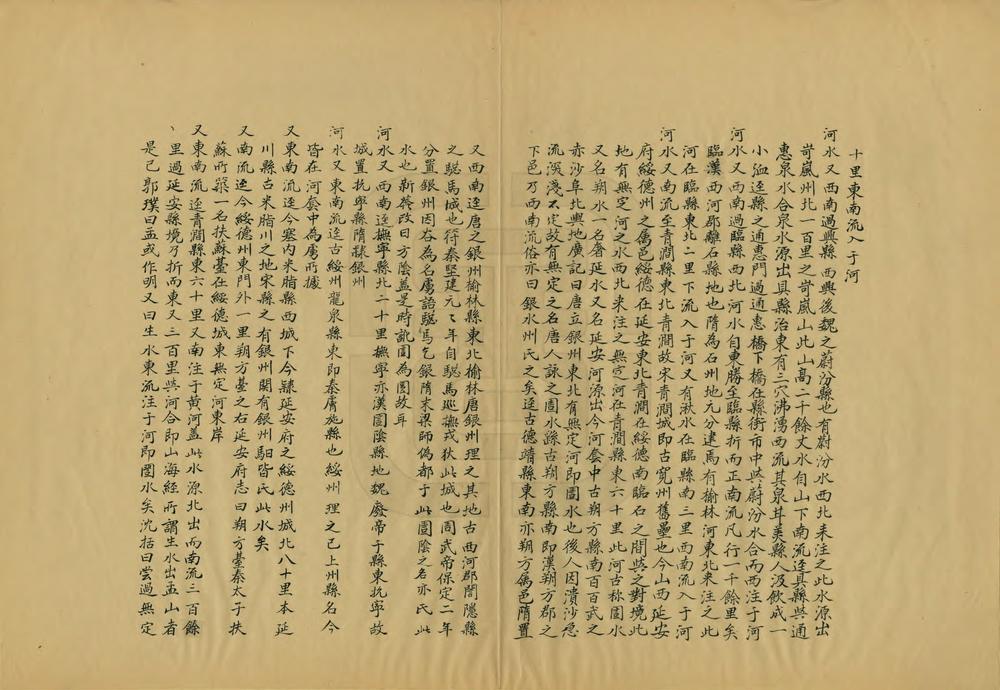 十里東南流入于河
河水又西南過興縣西興後魏之蔚汾縣也有蔚汾水西北来注之此水源出
岢嵐州北一百里之岢嵐山此山高二千餘丈水自山下南流逕其縣與通
惠泉水合泉水源出其縣治東有三穴沸湧西流其泉甘美縣人汲飲成一
小溢逕縣之通惠門過通惠橋下橋在縣街市中與蔚汾水合而西注于河
河水又西南過臨縣西北河水自東勝至臨縣折而正南流凡行一千餘里矣
臨漢西河郡離石縣地也隋為石州地元分建馬有榆林河東北来注之此
河在臨縣東北二里下流入于河又有湫水在臨縣南三里西南流入于河
河水又南流至青澗縣東北青澗故宋青澗城即古寛州舊壘也今山西延安
府綏德州之屬邑綏德在延安東北青澗在綏德南臨石之間與之對境此
地有無定河之水西北来注之無定河在青澗縣東六十里此河古称圁水
又名朔水一名奢延水又名延安河源出今河套中古朔方縣南百百武之
赤沙阜北輿地廣記曰唐立銀州東北有無定河即圁水也後人因潰沙急
流深淺不定故有無定之名唐人詠之圁水繇古朔方縣南即漢朔方郡之
下邑乃西南流俗亦曰銀水州氏之矣逕古德靖縣東南亦朔方屬邑隋置
又西南逕唐之銀州榆林縣東北榆林唐銀州理之其地古西河郡闇隱縣
之驄馬城也苻秦堅建元元年自驄馬巡撫戎狄此城也周武帝保定二年
分置銀州因谷為名虜語驄馬乞銀隋末梁師偽都于此圁陰之名亦氏此
水也新莽改曰方陰蓋是時訛圁為圜故耳
河水又西南逕撫寧縣北二十里撫寧亦漢圁陰縣地魏廢帝于縣東抗寧故
城置抗寧縣隋隸銀州
河水又東南流逕古綏州龍泉縣東即秦膚施縣也綏州理之已上州縣名今
皆在河套中為虜所據
又東南流逕今塞内米脂縣西城下今隸延安府之綏德州城北八十里本延
川縣古米脂川之地宋縣之有銀州關有銀州駟皆氏此水矣
又南流逕今綏德州東門外一里朔方臺之右延安府志曰朔方臺秦太子扶
蘇所築一名扶蘇臺在綏德城東無定河東岸
又東南流逕青澗縣東六十里又南注于黄河蓋此水源北出而南流三百餘
里過延安縣境乃折而東又三百里與河合即山海經所謂生水出孟山者
是已郭璞曰孟或作明又曰生水東流注于河即圁水矣沈括曰嘗過無定